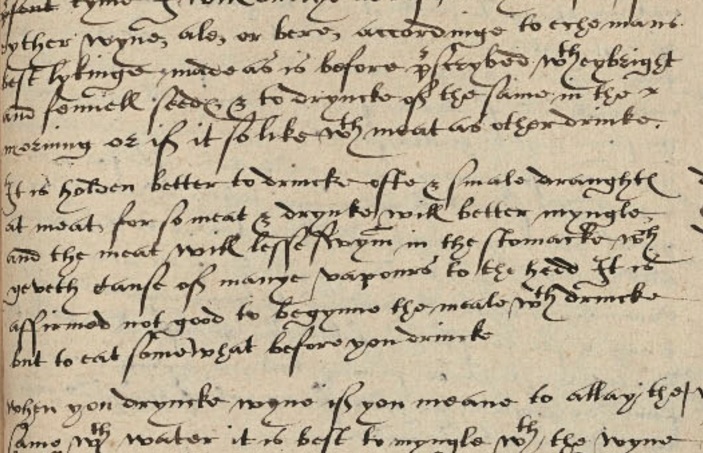 tyme
other wyne, ale, or bere, accordinge to eche mans
best lykinge, made as is before p̄scrybed wth eybright
and fennell seede, & to dryncke of the same in the
morning or if it so like wth meat as other drinke.
It is holden better to drincke ofte & smale draughtes
at meat, for so meat & drynke will better myngle,
and the meat will lesse swym in the stomacke wch
geveth cause of manye vapours to the hedd It is
affirmed not good to begynne the meale wth drincke
but to eat somewhat before you drincke
When you dryncke wyne if you meane to allay the
same wth water it is best to myngle wth the wyne